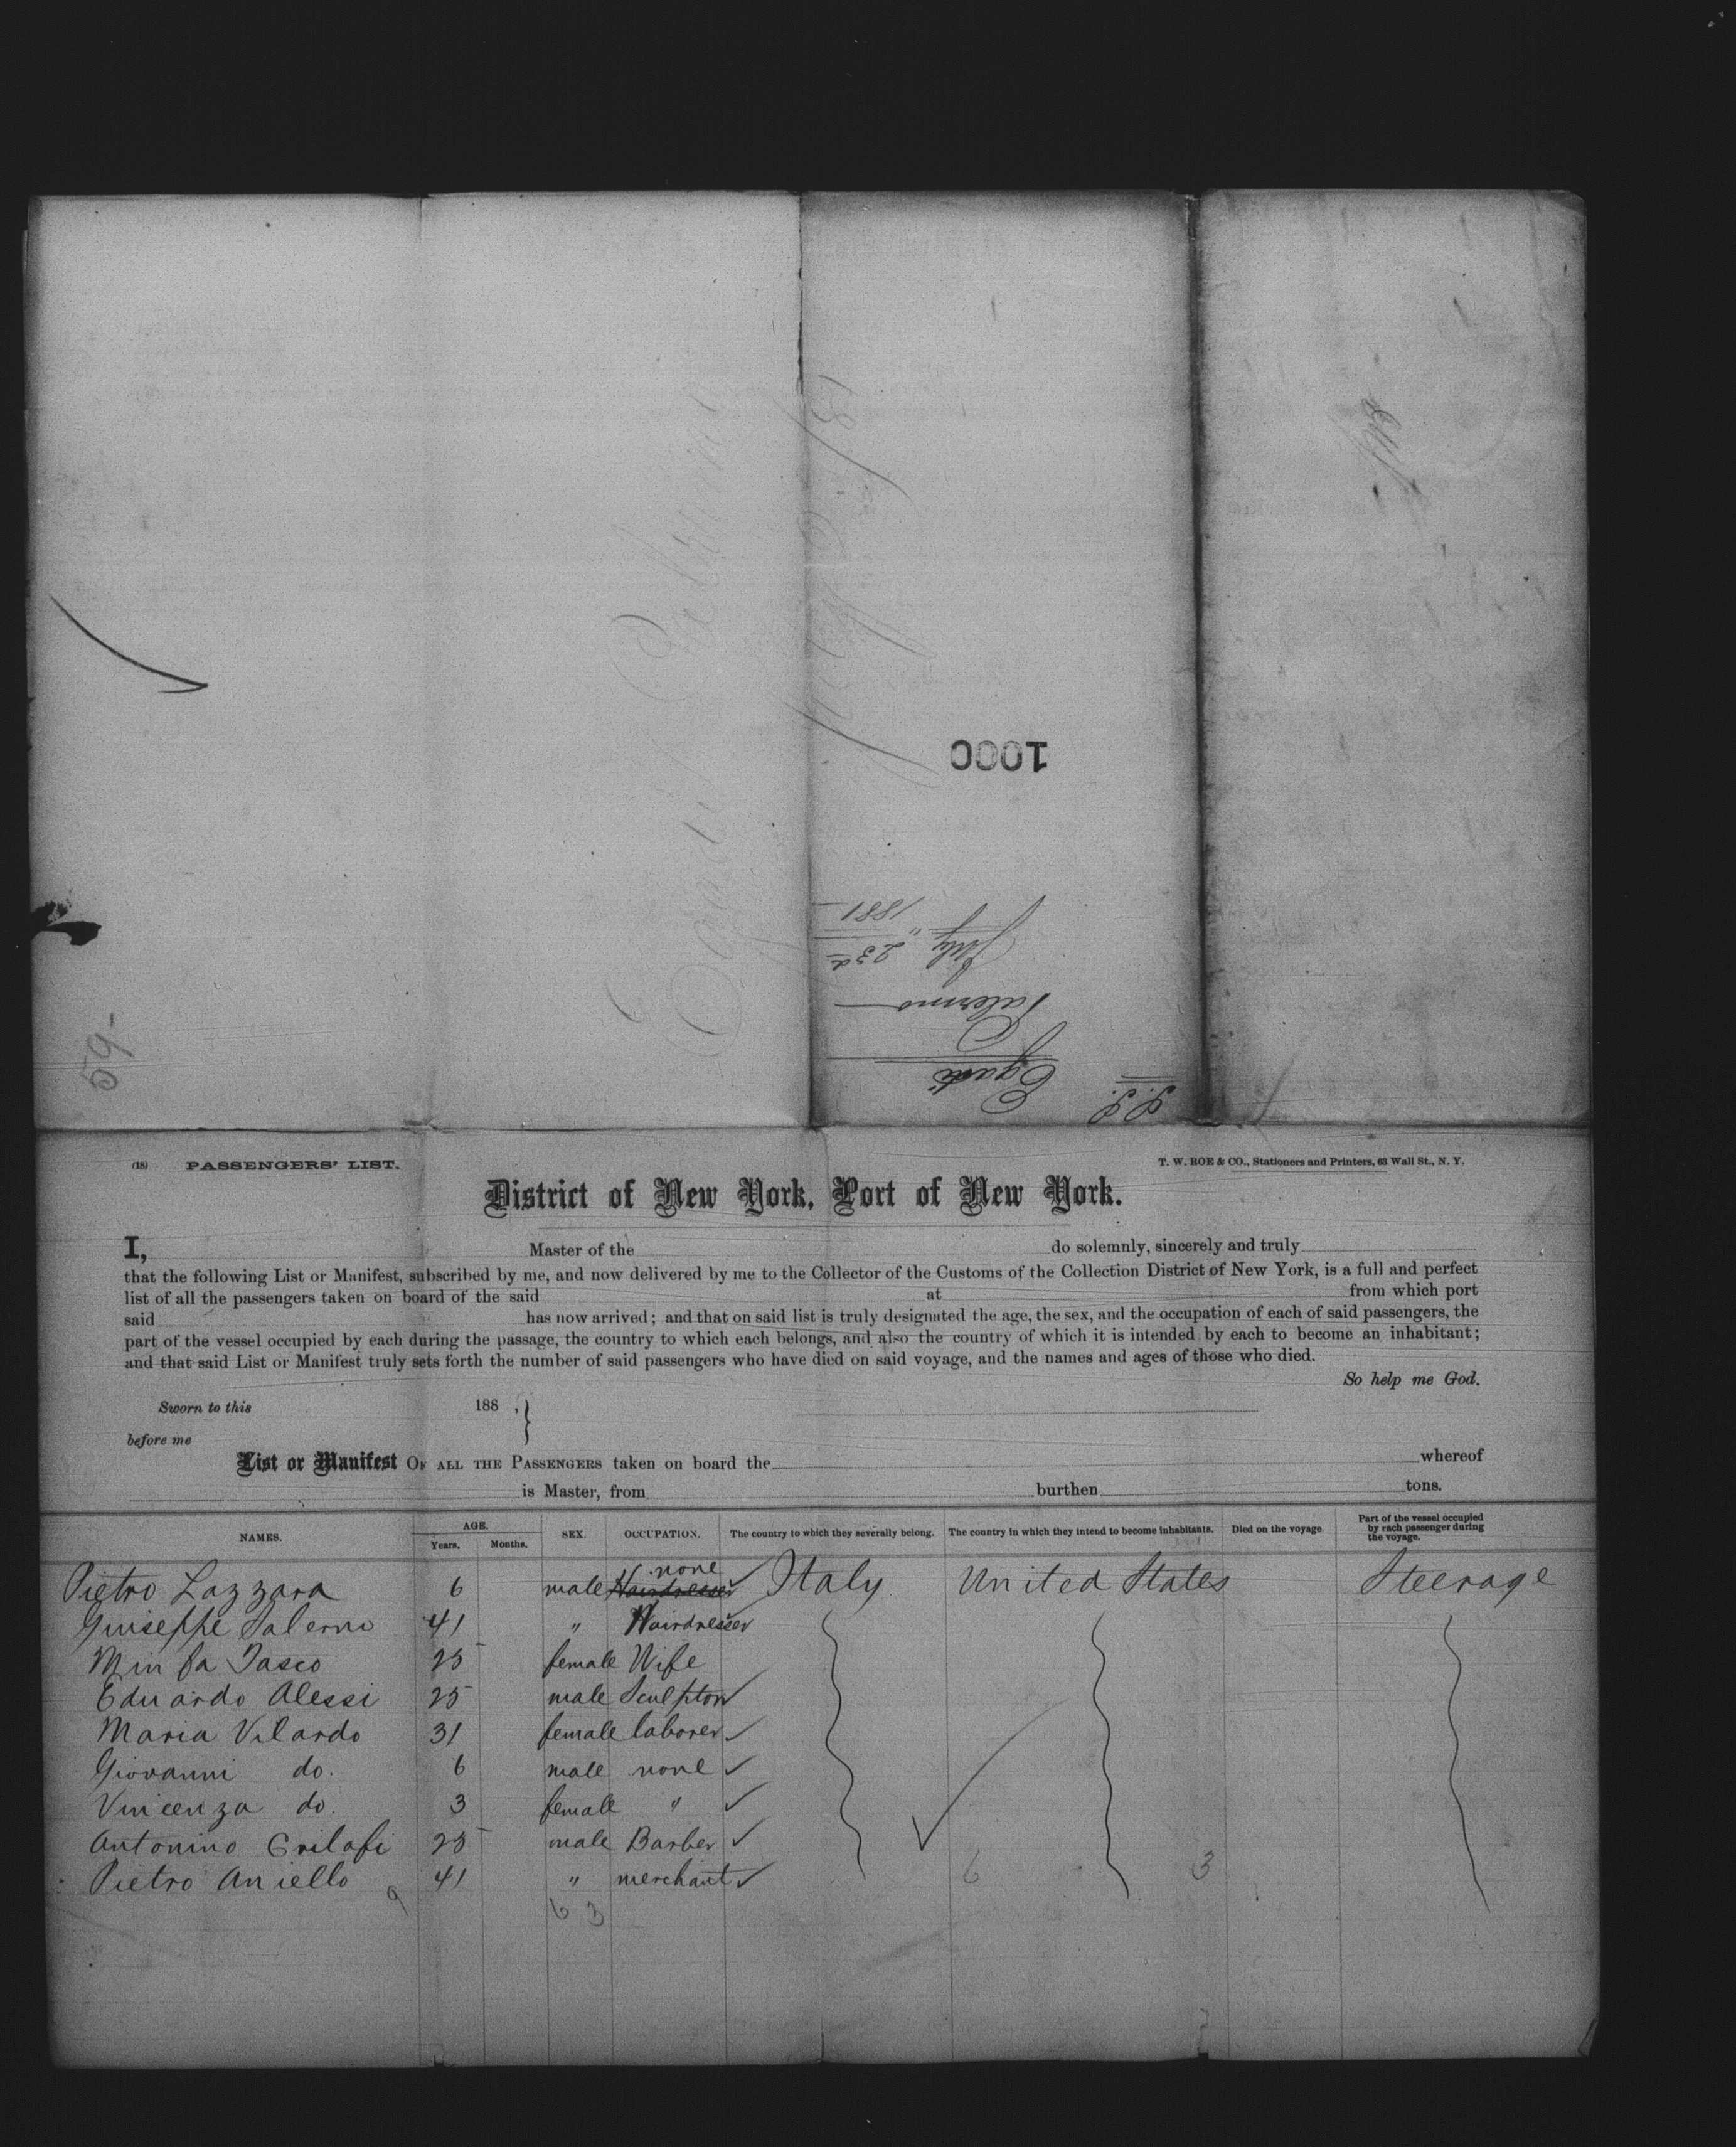 1881
July 23d
Palermo
Egadi
S.S.
1000
59-
(18) PASSENGERS' LIST.
T. W. ROE & CO., Stationers and Printers, 63 Wall St., N. Y.
District of New York, Port of New York.
I, Master of the do solemnly, sincerely and truly
that the following List or Manifest, subscribed by me, and now delivered by me to the Collector of the Customs of the Collection District of New York, is a full and perfect
list of all the passengers taken on board of the said at from which port
said has now arrived; and that on said list is truly designated the age, the sex, and the occupation of each of said passengers, the
part of the vessel occupied by each during the passage, the country to which each belongs, and also the country of which it is intended by each to become an inhabitant;
and that said List or Manifest truly sets forth the number of said passengers who have died on said voyage, and the names and ages of those who died.
So help me God.
Sworn to this 188 , }
before me
List or Manifest OF ALL THE PASSENGERS taken on board the whereof
is Master, from burthen tons.
NAMES. AGE. Years. Months. SEX. OCCUPATION. The country to which they severally belong. The country in which they intend to become inhabitants. Died on the voyage Part of the vessel occupied by each passenger during the voyage.
Pietro Lazzara 6 male Hairdresser none Italy United States Steerage
Guiseppe Salerno 41 " Hairdresser
Minfa Tasco 25 female Wife
Eduardo Alessi 25 male Sculptor
Maria Vilardo 31 female laborer
Giovanni do. 6 male none
Vincenza do. 3 female "
Antonino Crilafi 25 male Barber
Pietro Aniello 41 " merchant
9 6 3 6 3